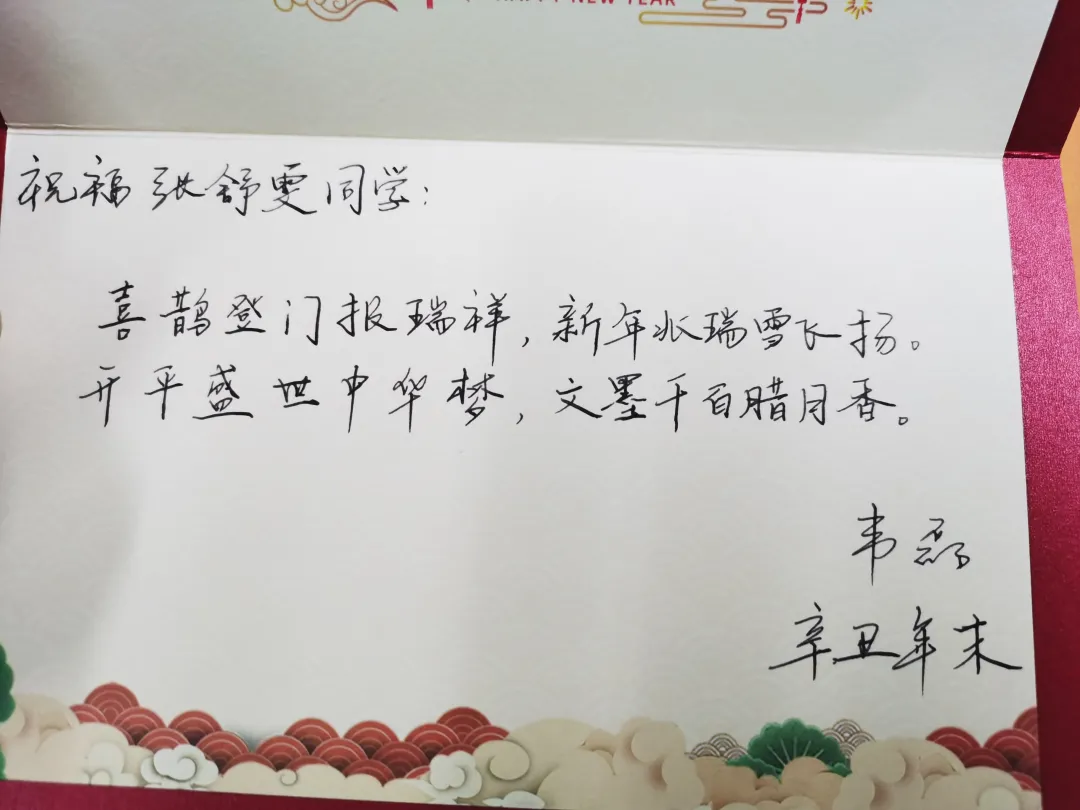 HAPPY NEW YEAR
祝福张舒雯同学：
喜鹊登门报瑞祥，新年兆瑞雪飞扬。
开平盛世中华梦，文墨千百腊月香。
韦磊
辛丑年末